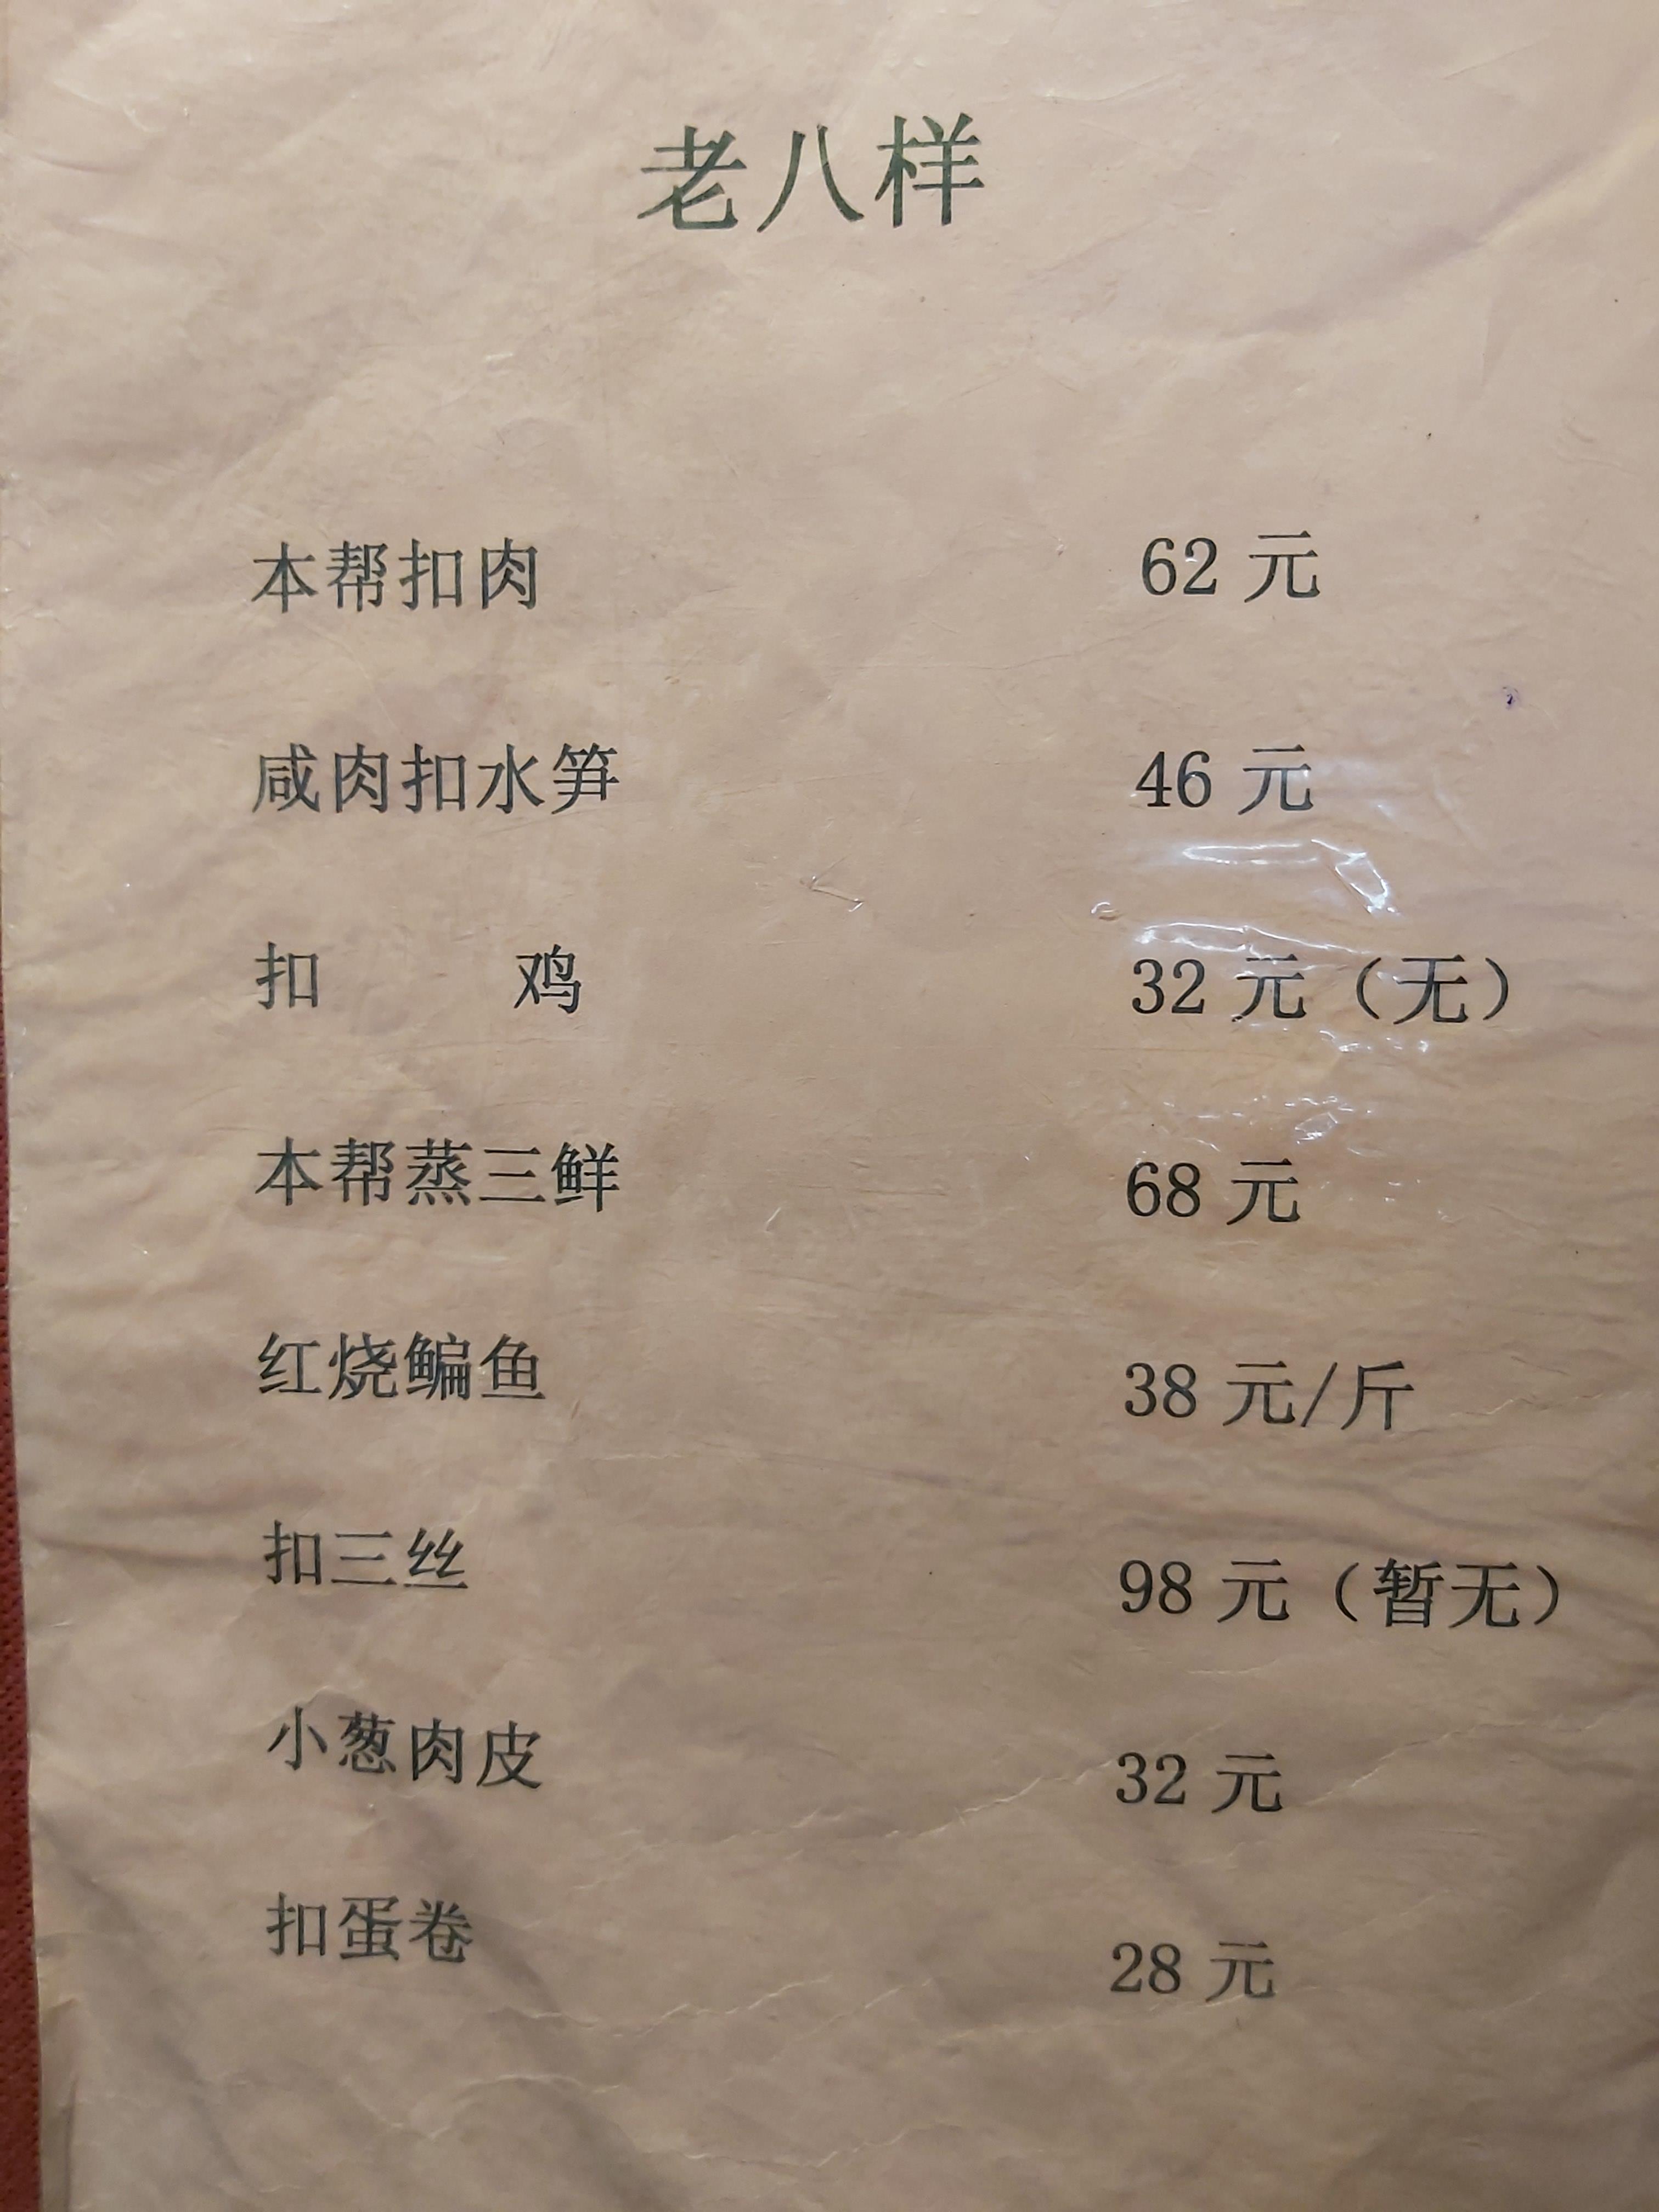 老八样
本帮扣肉 62元
咸肉扣水笋 46元
扣 鸡 32元（无）
本帮蒸三鲜 68元
红烧鳊鱼 38元/斤
扣三丝 98元（暂无）
小葱肉皮 32元
扣蛋卷 28元